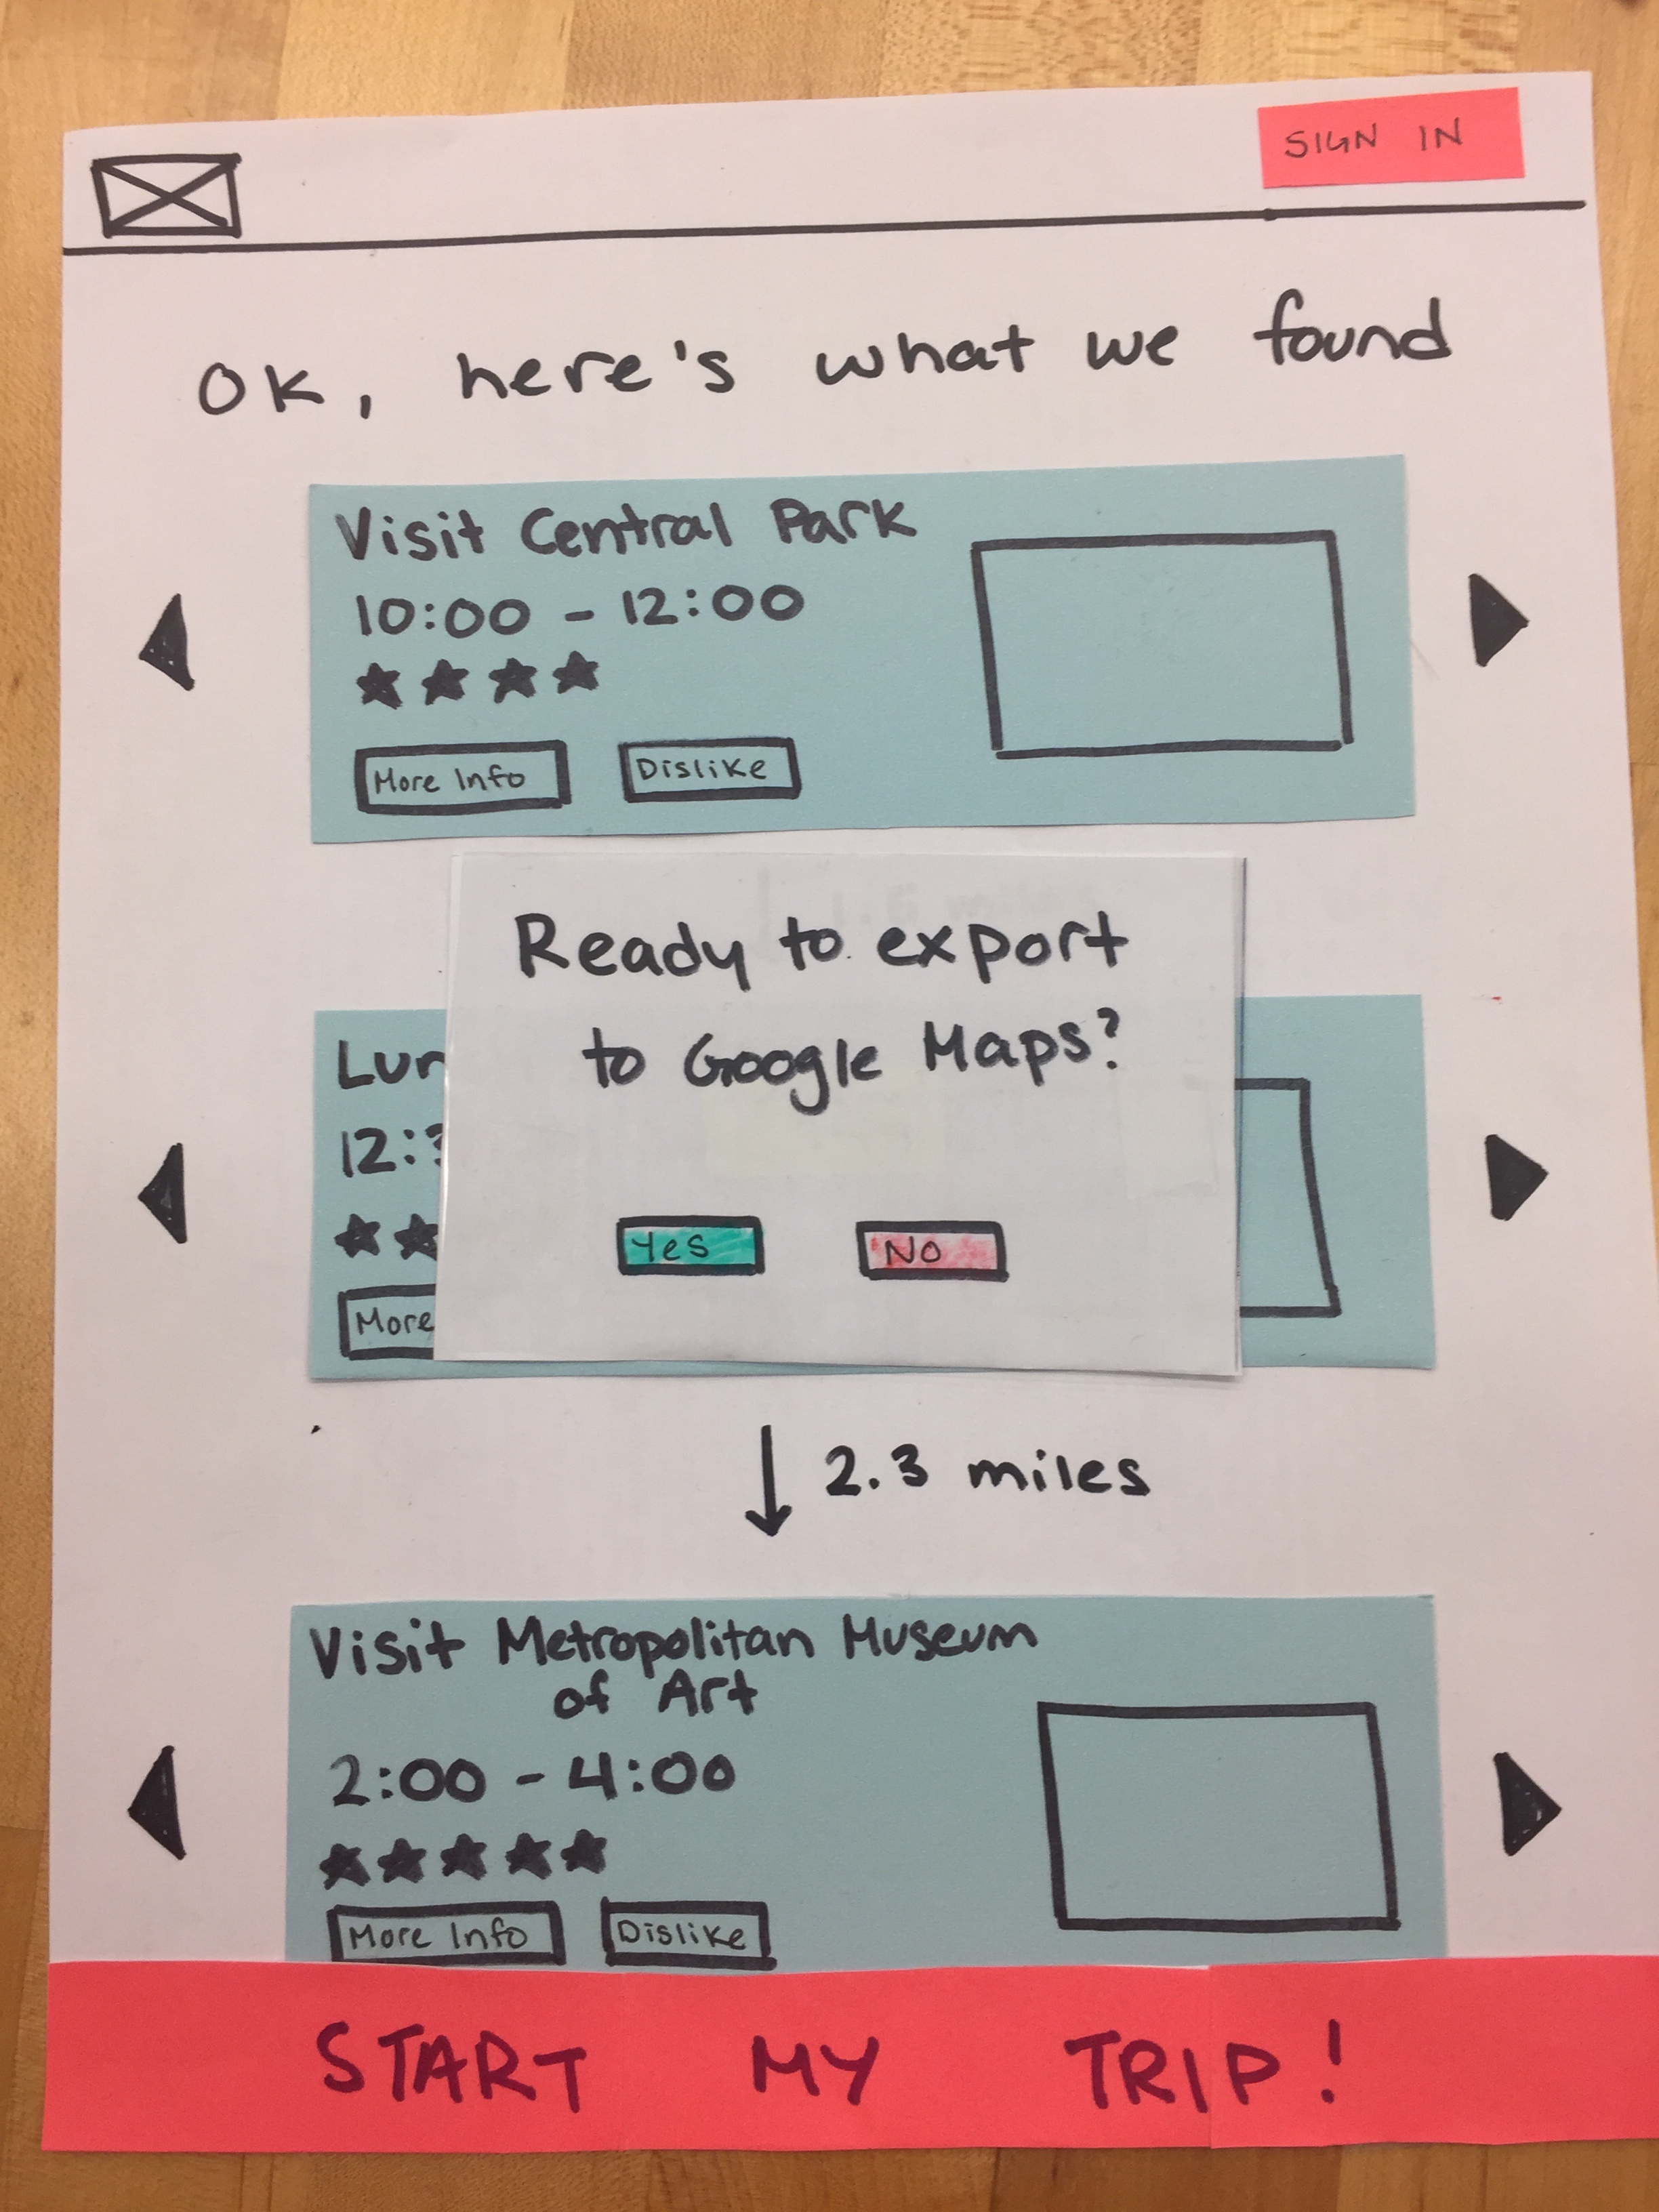 SIGN IN
OK, here's what we found
Visit Central Park
10:00 - 12:00
More Info
Dislike
Ready to export
to Google Maps?
Yes
No
More
2.3 miles
Visit Metropolitan Museum
of Art
2:00 - 4:00
More Info
Dislike
START MY TRIP!